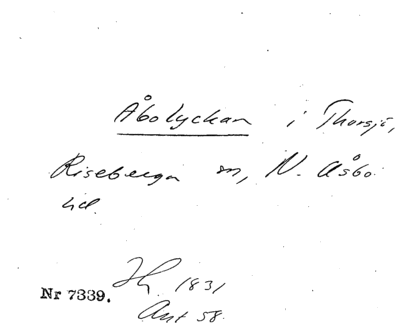 Åbolyckan i Thorsjö,
Riseberga sn, N. Åsbo
hd.
Jh. 1831
Nr 7339.
Akt 58.